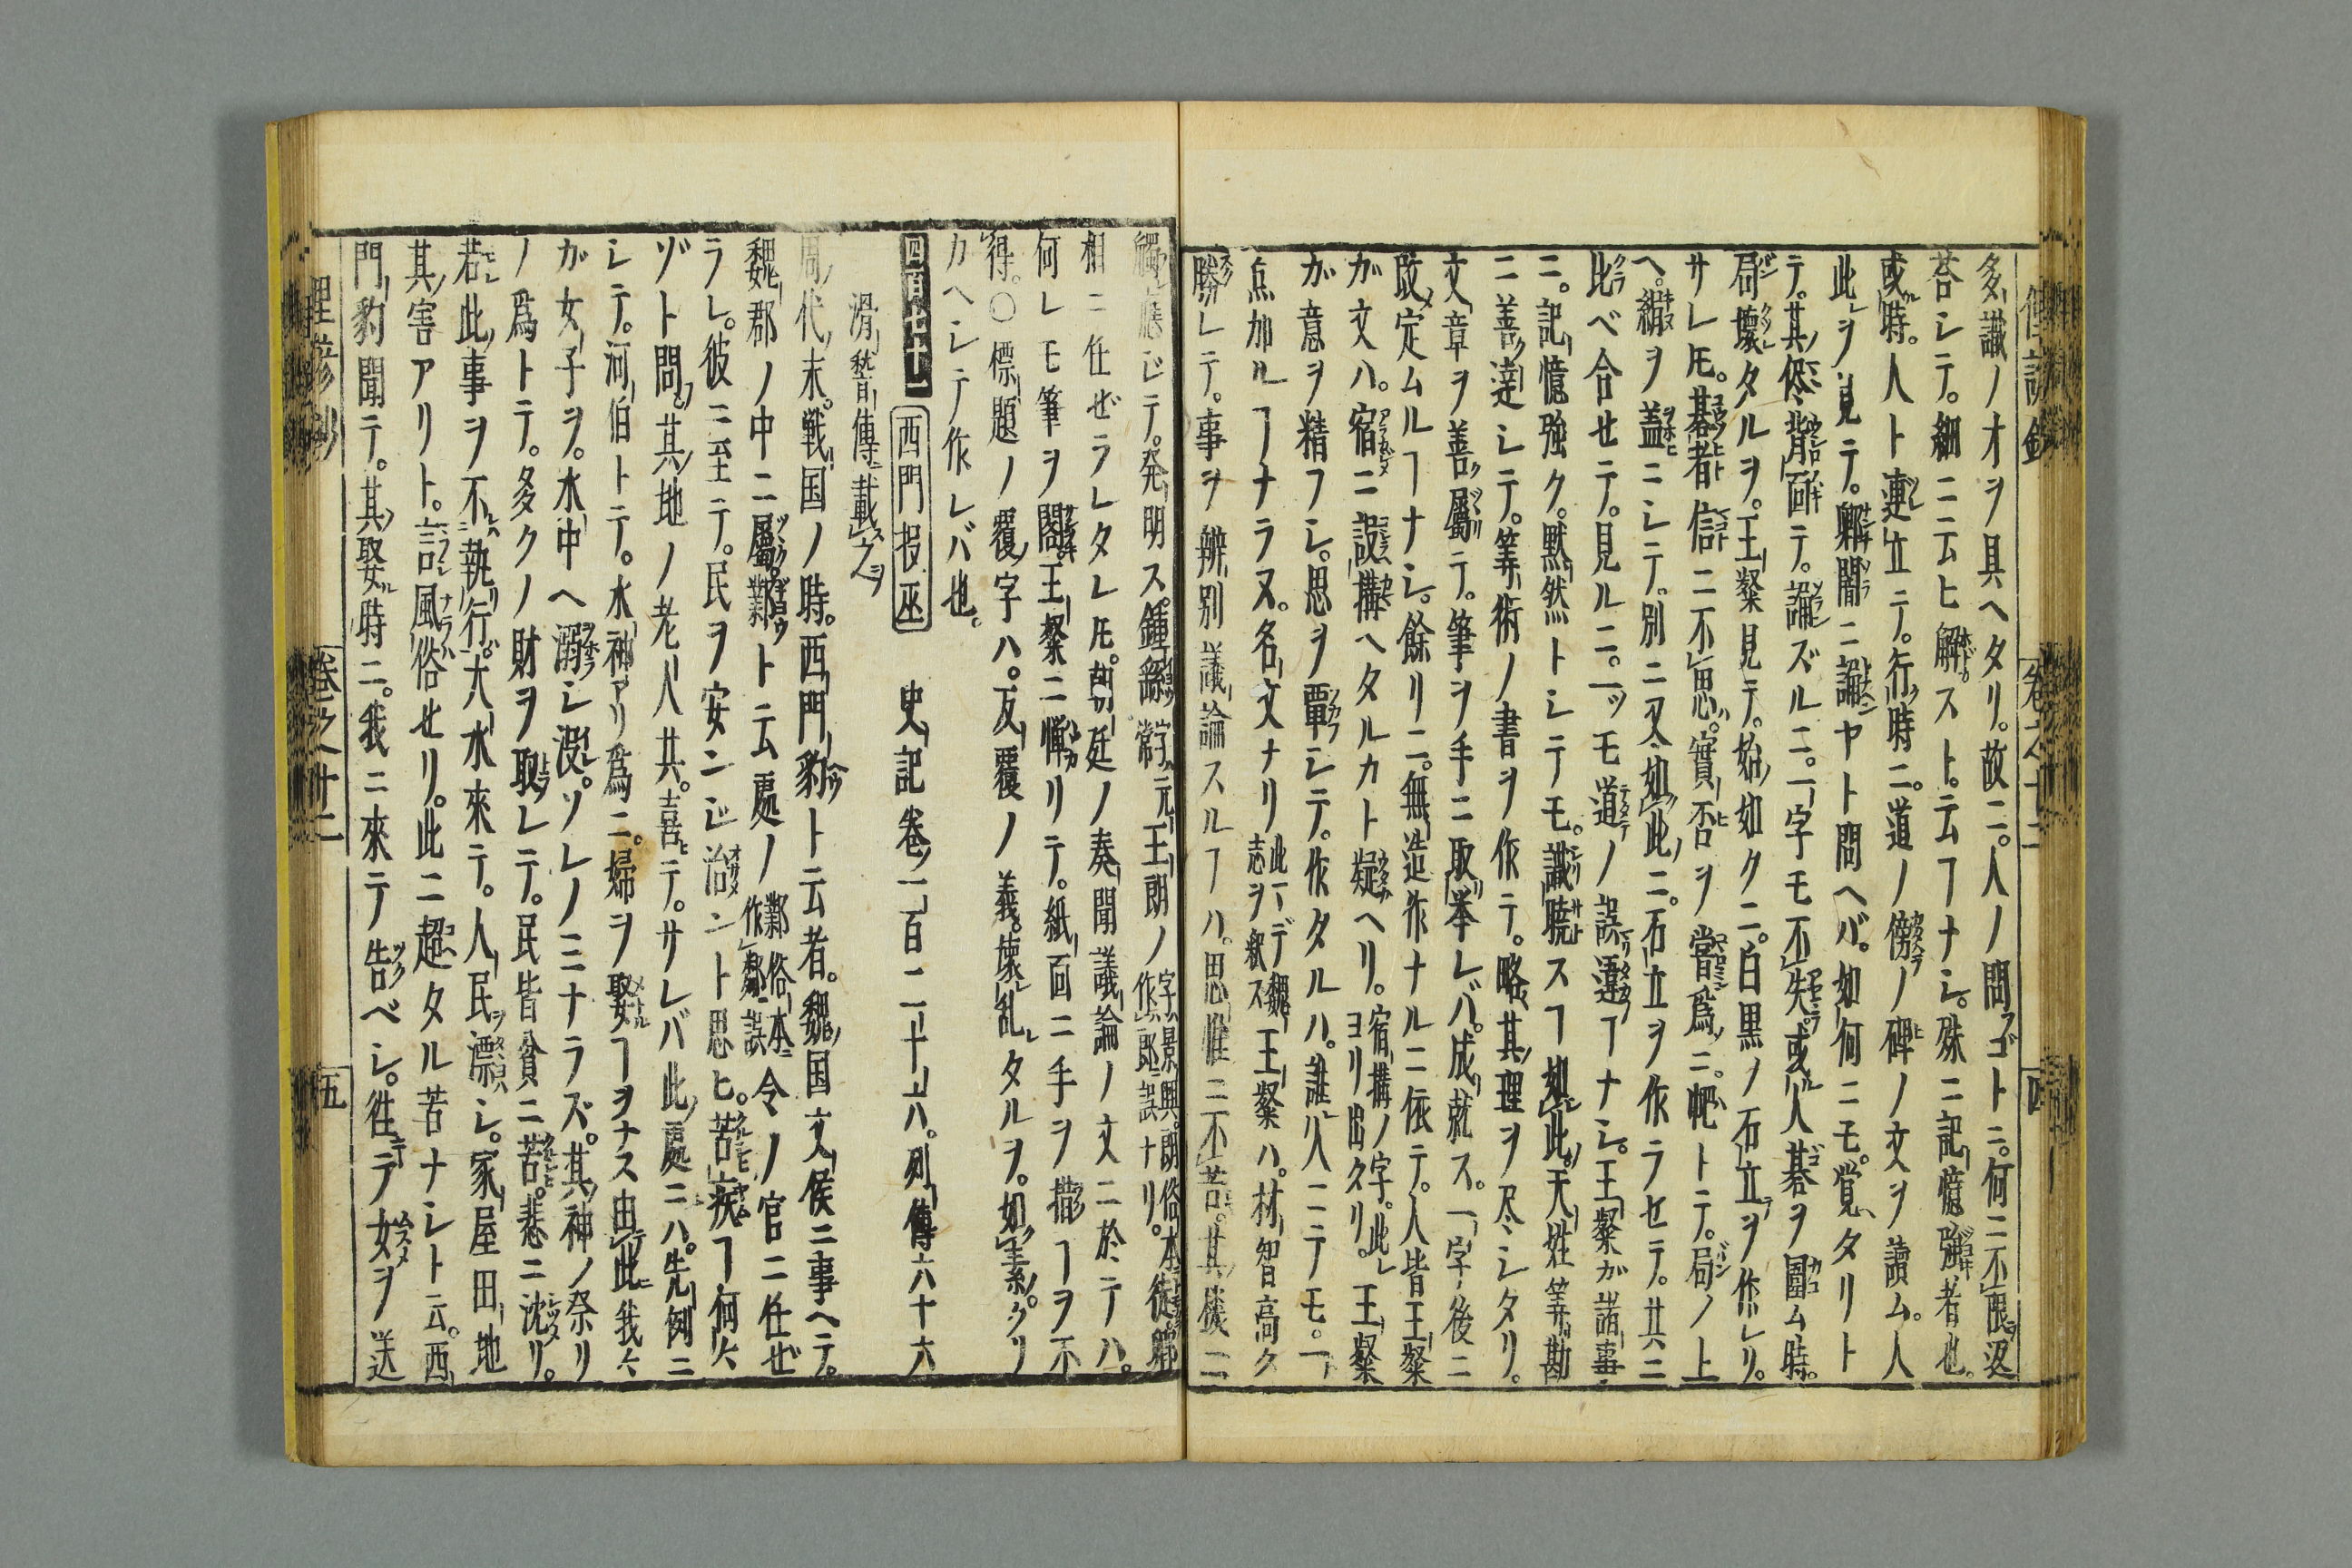 多識ノオヲ具ヘタリ。故ニ。人ノ問フゴトニ。何ニ不限。返
荅シテ。細ニ云ヒ解スト。云フヿナシ。殊ニ記憶強者也。
或時。人ト連立テ。行時ニ。道ノ傍ノ碑ノ文ヲ讀ム。人
此ヲ見テ。闇ニ誦ヤト問ヘバ。如何ニモ。覚ヘタリト
テ。其侭背面テ。誦ズルニ。一字モ不失。或人碁ヲ圍ム時。
局壞タルヲ。王粲見テ。始ノ如クニ。白黒ノ石立ヲ作レリ。
サレ𪜈。碁者信ニ不思。實否ヲ嘗為ニ。帊トテ。局ノ上
ヘ。絹ヲ蓋ニシテ。別ニ又如此ニ。石立ヲ作ラセテ。其ニ
比ベ合セテ。見ルニ。一ツモ道ノ誤違フヿナシ。王粲ガ諸事
ニ。記憶強ク。黙然トシテモ。識暁スヿ如此。天姓筭勘
ニ善達シテ。筭術ノ書ヲ作テ。略其理ヲ尽シタリ。
文章ヲ善屬テ。筆ヲ手ニ取挙レバ。成就ス。一字後ニ
改定ムルヿナシ。餘リニ。無造作ナルニ依テ。人皆王粲
ガ文ハ。宿ニ設構ヘタルカト疑ヘリ。宿構ノ字。此ヨリ出タリ。王粲
ガ意ヲ精フシ。思ヲ覃シテ。作タルハ。誰人ニテモ。一
点加ルヿナラヌ。名文ナリ此ハデ魏志ヲ釈ス王粲ハ。材智高ク
勝レテ。事ヲ辨別議論スルヿハ。思惟ニ不苦。其儘ニ
觸應ジテ。発明ス。鍾繇字元常王朗ノ字景興。朗俗本作郎誤ナリ。徒郷
相ニ任ゼラレタレ𪜈。朝廷ノ奏聞議論ノ文ニ於テハ。
何レモ筆ヲ閣。王粲ニ憚リテ。紙面ニ手ヲ撒ヿヲ不
得。〇標題ノ覆字ハ。反覆ノ義。壊乱レタルヲ。如素クリ
カヘシテ作レバ也。
四百七十一 西門投巫 史記巻ノ一百二十六。列傳六十六
滑稽傳ニ載之ヲ
周ノ代ノ末。戦国ノ時。西門豹ト云者。魏ノ国文侯ニ事ヘテ。
魏郡ノ中ニ屬。鄴ト云處ノ鄴俗本ニ作鄴誤令ノ官ニ任ゼ
ラレ。彼ニ至テ。民ヲ安ンジ治ント思ヒ。苦疾ムヿ何ニ
ゾト問。其地ノ老人共。喜テ。サレバ此處ニハ。先例ニ
シテ。河伯トテ。水神アリ為ニ。婦ヲ娶ルヿヲナス由此我々
ガ女子ヲ。水中ヘ溺シ没。ソレノミナラズ。其神ノ祭リ
ノ為トテ。多クノ財ヲ取レテ。民皆貧ニ苦。悲ニ沈リ。
若此事ヲ不執行。大水來テ。人民ヲ漂損シ。家屋田地
其害アリト。言風俗セリ。此ニ超タル苦ナシト云。西
門豹聞テ。其娶時ニ。我ニ來テ告ベシ。徃テ女ヲ送
巻之十二 四
巻之十二 五